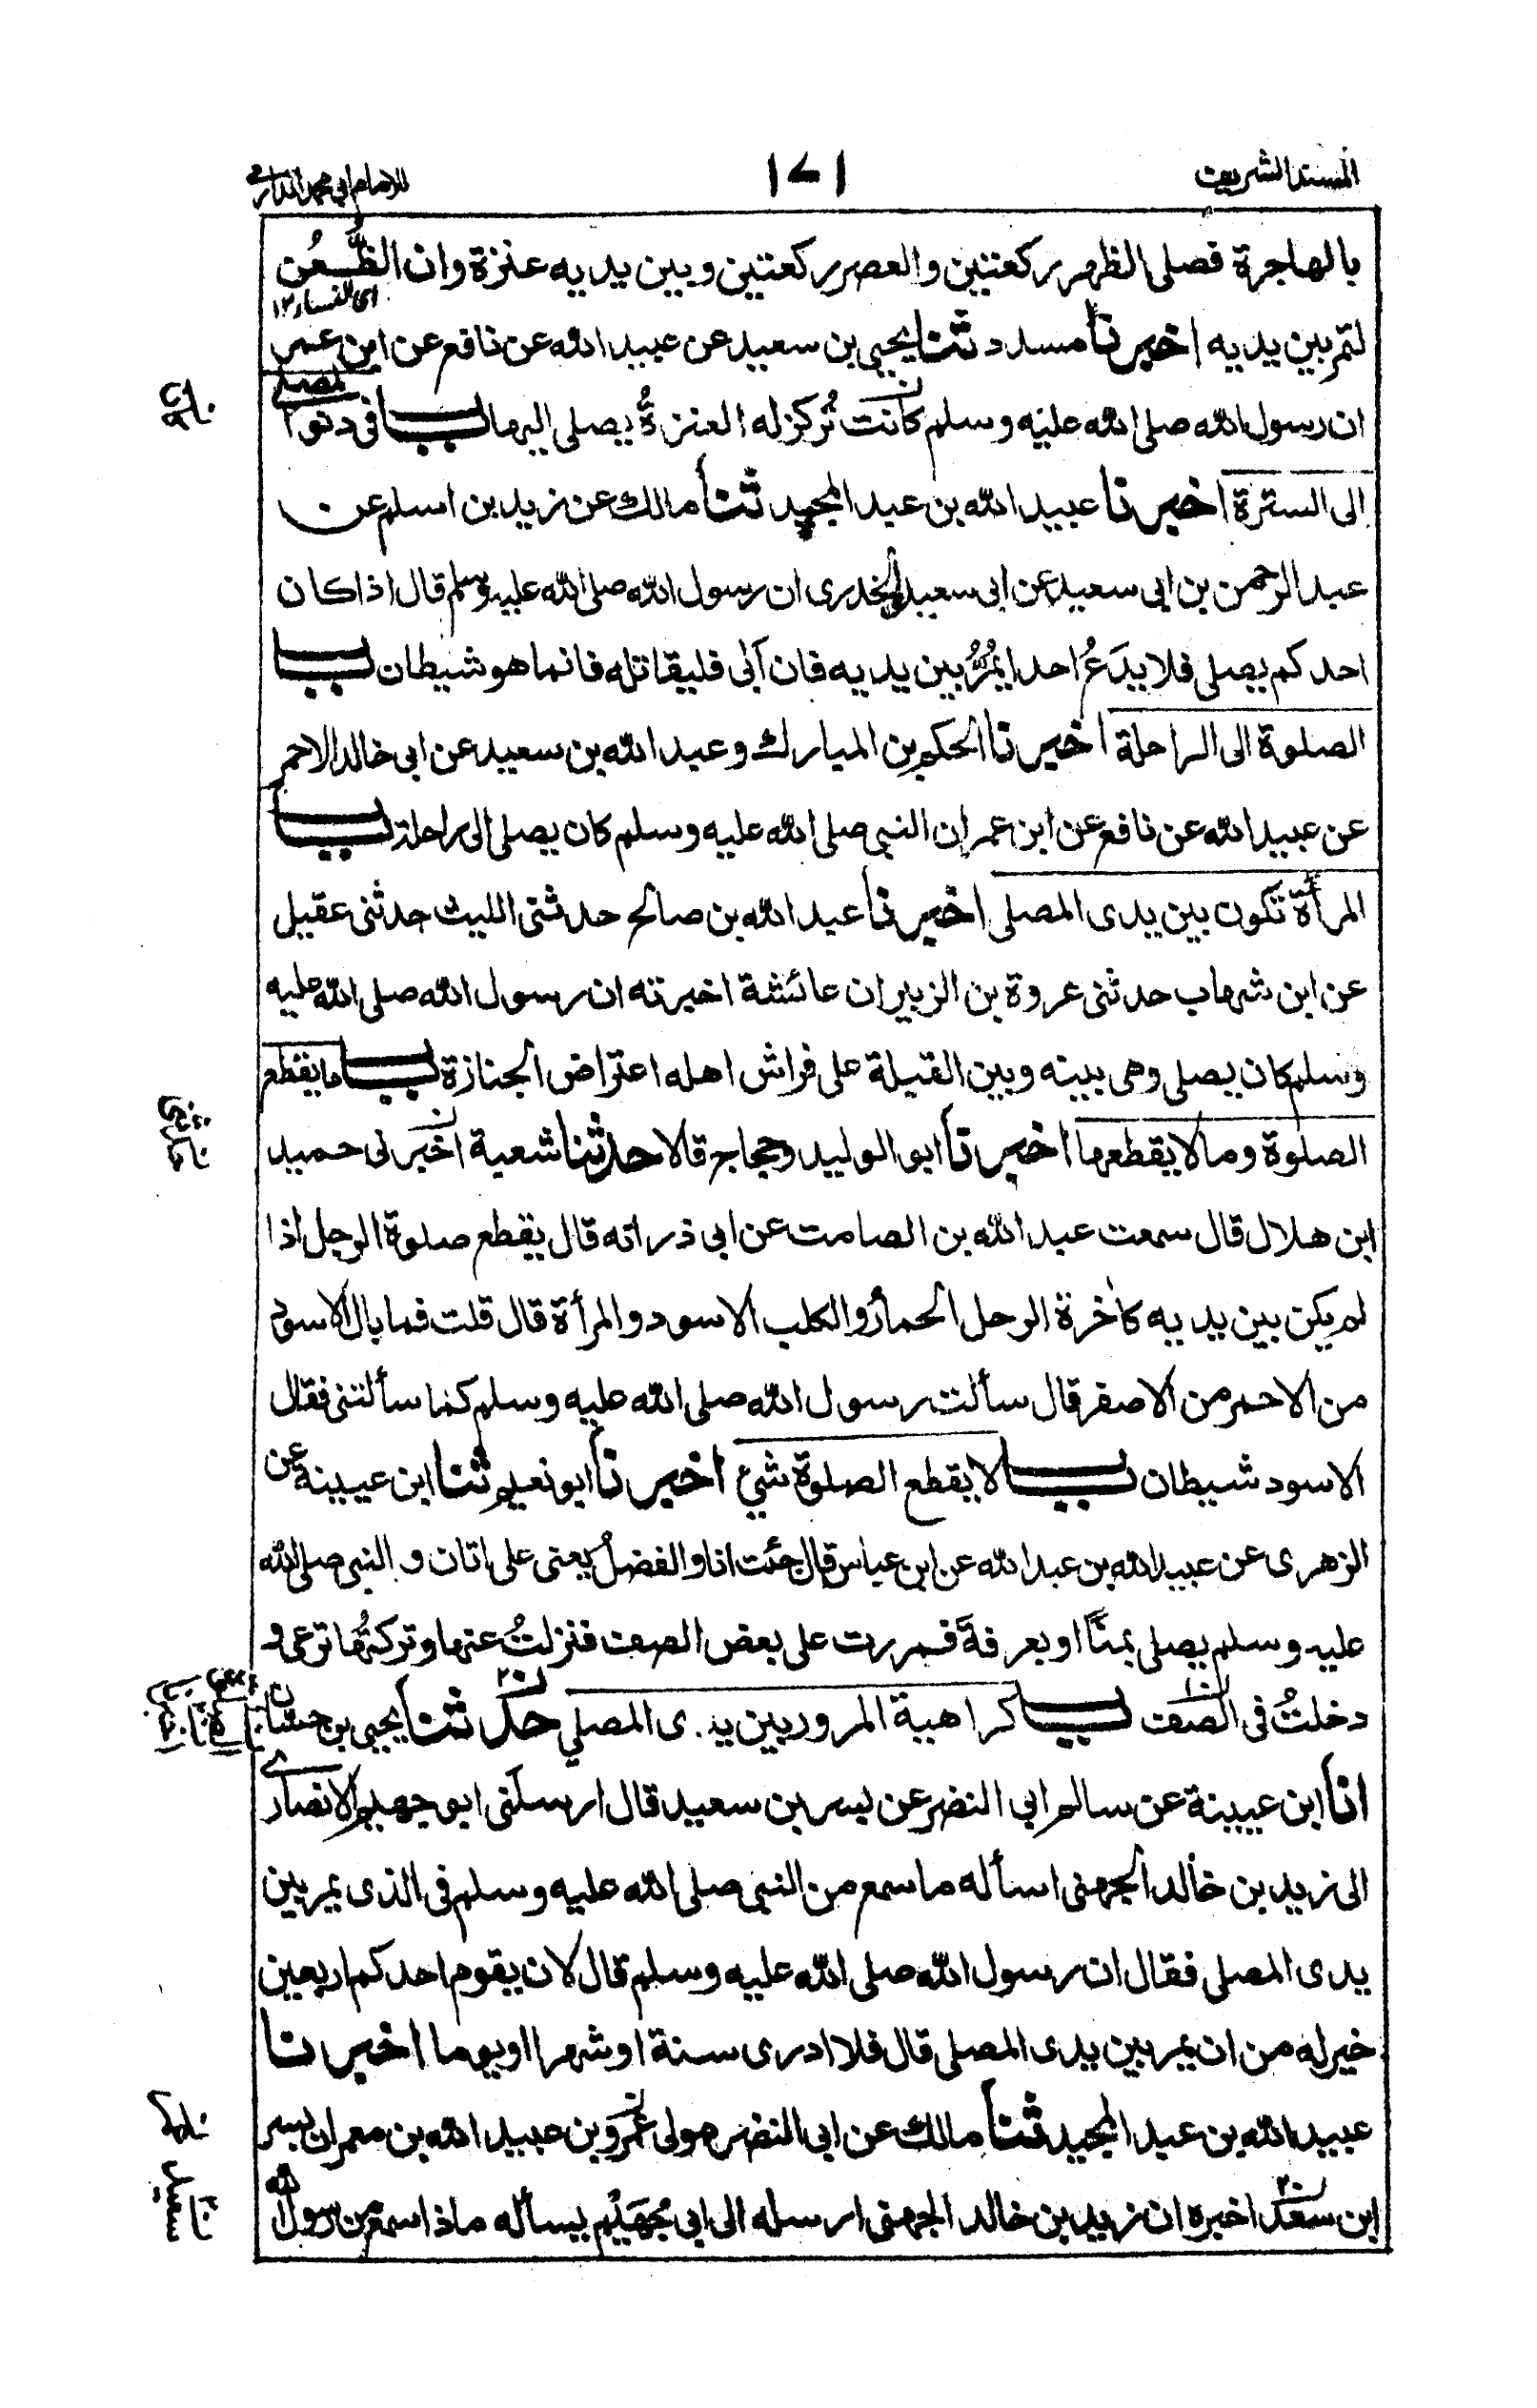 المسند الشريف
١٧١
للامام ابي محمد الدارمي
بالهاجرة فصلى الظهر ركعتين والعصر ركعتين وبين يديه عنزة وان الظُّعُن
اى النساء ١٢
لتمر بين يديه اخبرنا مسدد ثنا يحيى بن سعيد عن عبيد الله عن نافع عن ابن عمر
ان رسول الله صلى الله عليه وسلم كانت تُركز له العنزةُ يصلى اليها باب فى دنوا لمصلى
الى السترة اخبرنا عبيد الله بن عبد المجيد ثنا مالك عن زيد بن اسلم عن
عبد الرحمن بن ابى سعيد عن ابى سعيد الخدرى ان رسول الله صلى الله عليه وسلم قال اذا كان
احدكم يصلى فلا يدَعُ احدا يمُرُّ بين يديه فان أبى فليقاتله فانما هو شيطان باب
الصلوة الى الراحلة اخبرنا الحكم بن المبارك وعبد الله بن سعيد عن ابى خالد الاحمر
عن عبيد الله عن نافع عن ابن عمر ان النبى صلى الله عليه وسلم كان يصلى الى راحلة باب
المرأة تكون بين يدى المصلى اخبرنا عبد الله بن صالح حدثنى الليث حدثنى عقيل
عن ابن شهاب حدثنى عروة بن الزبير ان عائشة اخبرته ان رسول الله صلى الله عليه
وسلم كان يصلى وهى بينه وبين القبلة على فراش اهله اعتراض الجنازة باب ما يقطع
الصلوة وما لا يقطعها اخبرنا ابو الوليد وحجاج قالا حدثنا شعبة اخبرنى حميد
ابن هلال قال سمعت عبد الله بن الصامت عن ابى ذر انه قال يقطع صلوة الرجل اذا
لم يكن بين يديه كأخرة الرحل الحمار والكلب الاسود والمرأة قال قلت فما بال الاسود
من الاحمر من الاصفر قال سألت رسول الله صلى الله عليه وسلم كما سألتنى فقال
الاسود شيطان باب لا يقطع الصلوة شئ اخبرنا ابو نعيم ثنا ابن عيينة عن
الزهرى عن عبيد الله بن عبد الله عن ابن عباس قال جئت انا والفضلُ يعنى على اتان و النبى صلى الله
عليه وسلم يصلى بمنًا او بعرفةَ فمررت على بعض الصف فنزلتُ عنها وتركتُها ترعى و
دخلتُ فى الصف باب كراهية المرور بين يدى المصلي حدثنا يحيى بن حسان
انا ابن عيينة عن سالم ابى النضر عن بسر بن سعيد قال ارسلنى ابو جهيم الانصارى
الى زيد بن خالد الجهنى اسأله ما سمع من النبى صلى الله عليه وسلم فى الذى يمر بين
يدى المصلى فقال ان رسول الله صلى الله عليه وسلم قال لان يقوم احدكم اربعين
خير له من ان يمر بين يدى المصلى قال فلا ادرى سنة او شهرا او يوما اخبرنا
عبيد الله بن عبد المجيد ثنا مالك عن ابى النضر مولى عمرو بن عبيد الله بن معمر ان بسر
ابن سعد اخبره ان زيد بن خالد الجهنى ارسله الى ابى جُهَيْم يسأله ماذا سمع من رسول الله